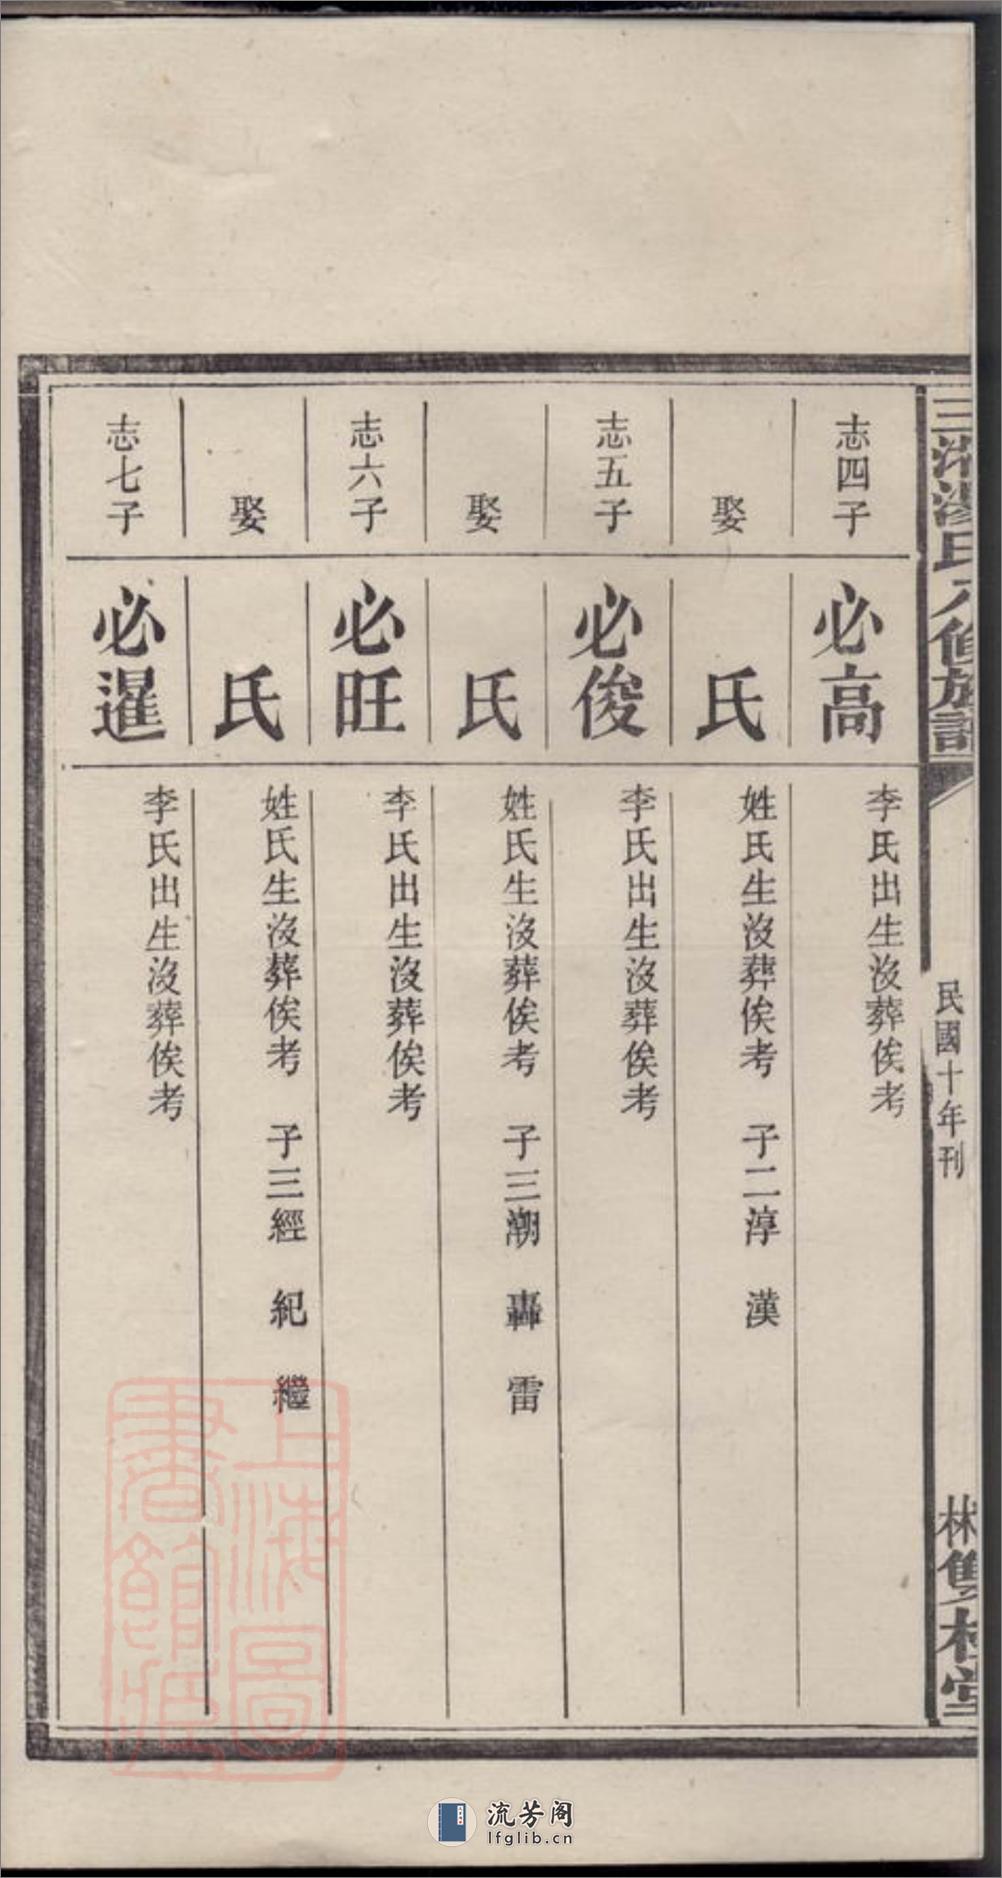 民國十年刊
志四子
必高
李氏出生沒葬俟考
娶
氏
姓氏生沒葬俟考 子二淳 漢
志五子
必俊
李氏出生沒葬俟考
娶
氏
姓氏生沒葬俟考 子三潮 轟 雷
志六子
必旺
李氏出生沒葬俟考
娶
氏
姓氏生沒葬俟考 子三經 紀 繼
志七子
必暹
李氏出生沒葬俟考
上海圖
書館藏
流芳阁
lfglib.cn